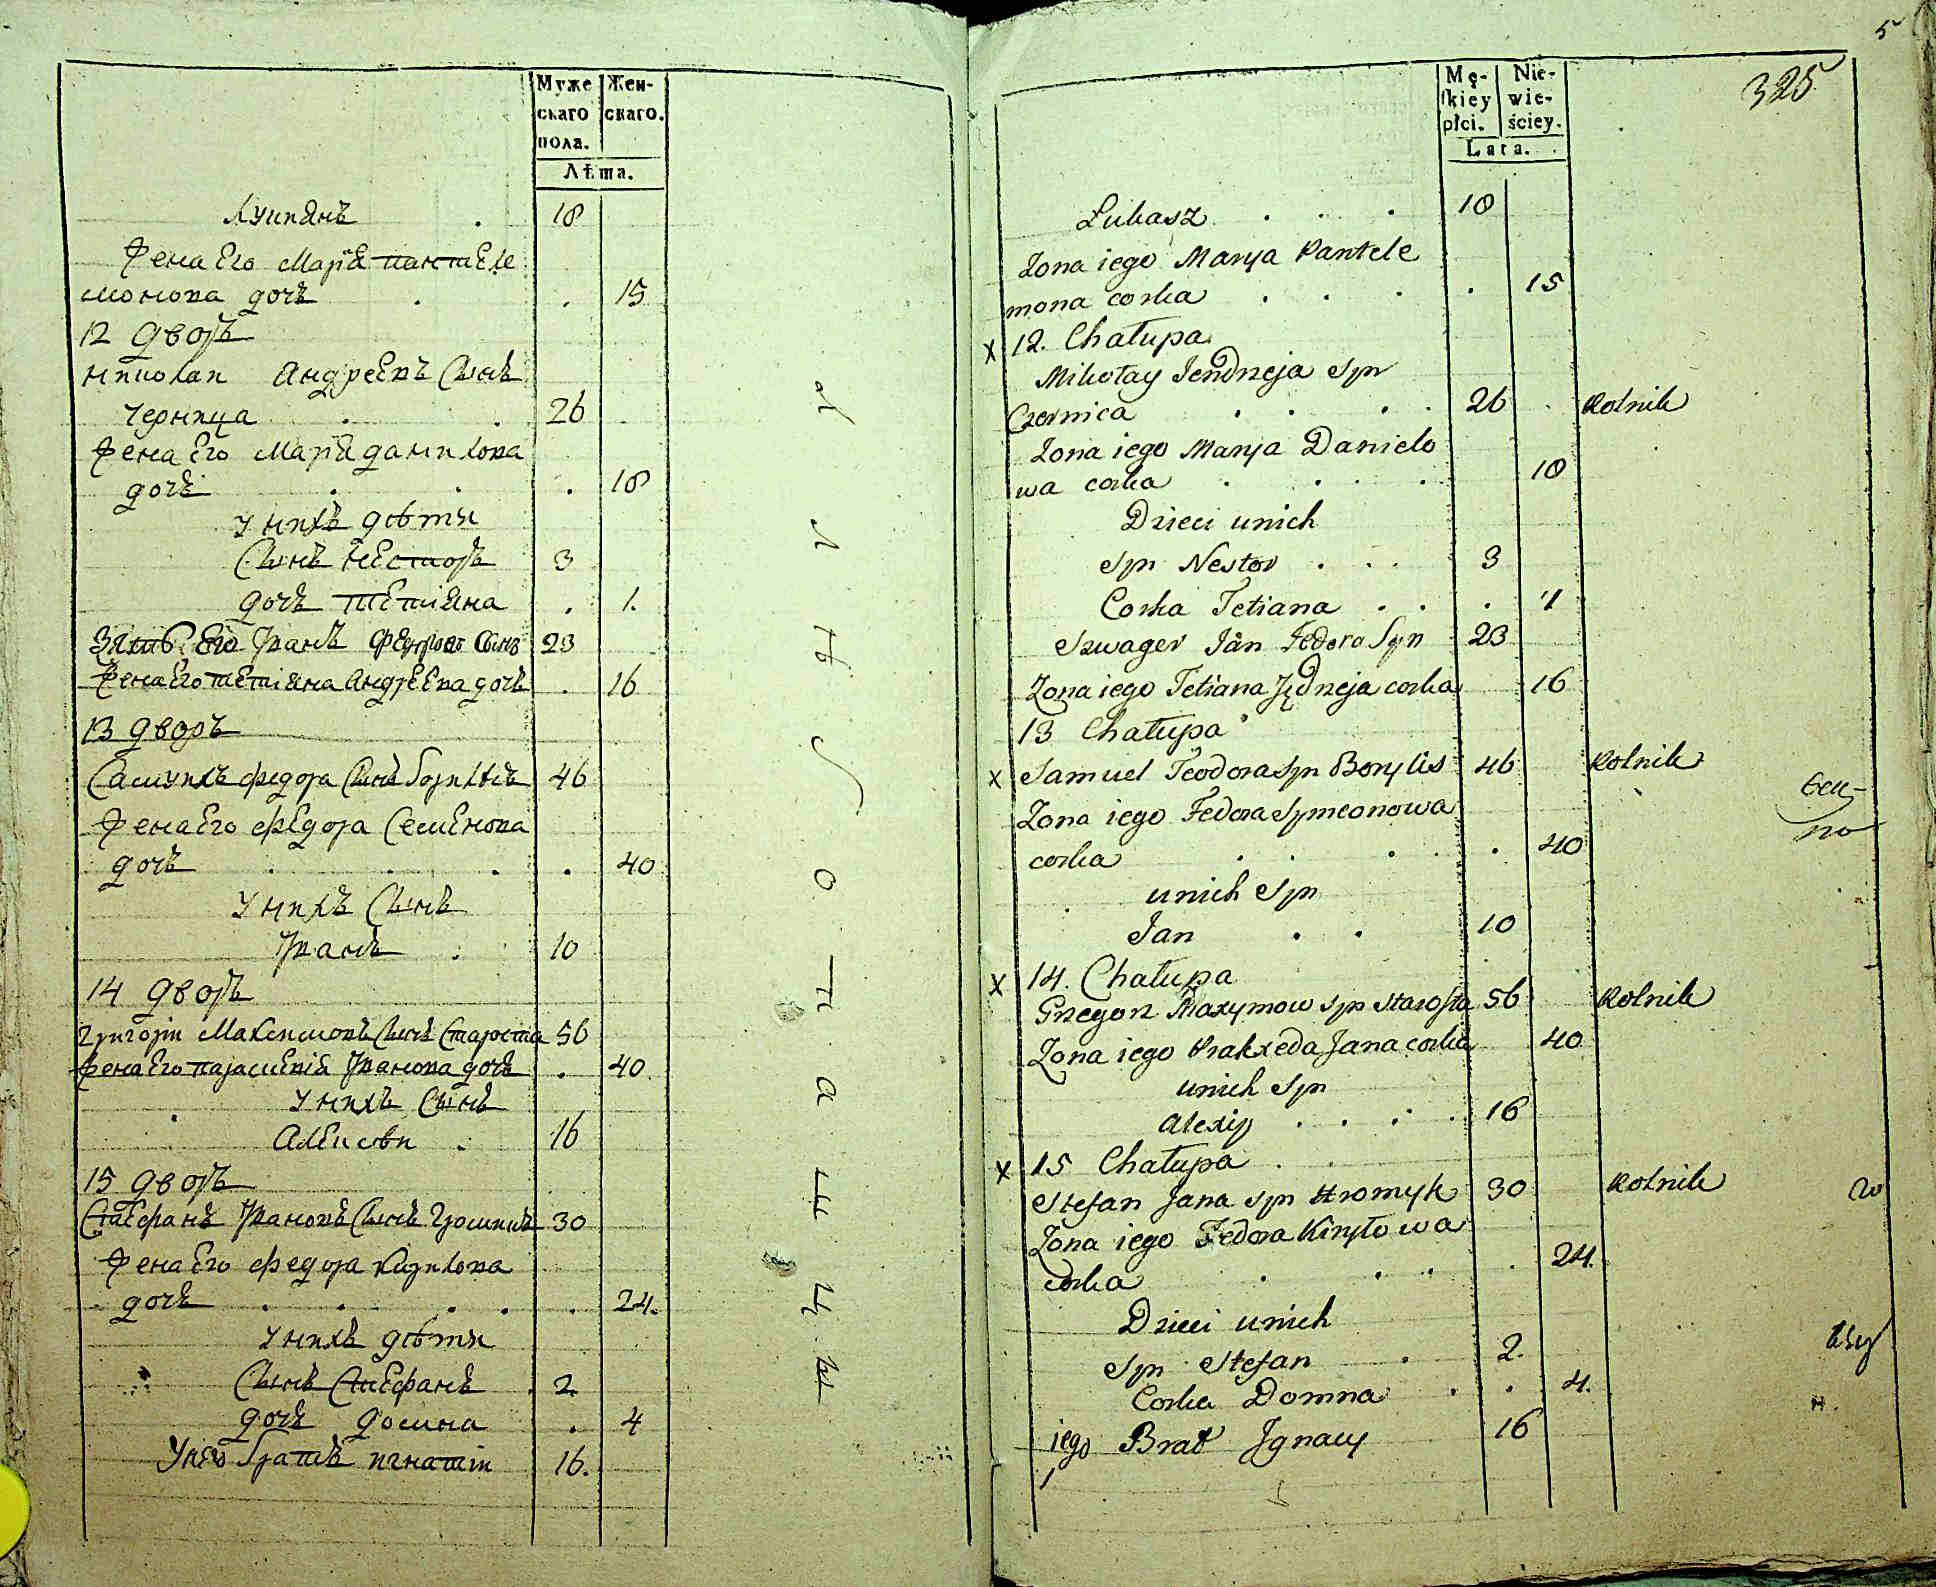 Муже
скаго
пола.
Жен-
скаго.
Лѣта.
Лукианъ 18
Жена Его Марїя пантеле
монова дочъ 15
12 Дворъ
Николай Андреевъ Сынъ
Черница 26
Жена Его Марїя данилова
дочъ 18
У нихъ дѣти
Сынъ Несторъ 3
дочъ Тетіяна 1.
Зять Его Иванъ Федоровъ Сынъ 23
Жена Его Тетіяна Андреева дочъ 16
13 Дворъ
Самуилъ Федора Сынъ 46
Жена Его Федора Семенова
дочъ 40
У нихъ Сынъ
Иванъ 10
14 Дворъ
Григорїи Максимовъ Сынъ Староста 56
Жена Его парасцевїя Иванова дочъ 40
У нихъ Сынъ
Алексѣи 16
15 Дворъ
Стефанъ Ивановъ Сынъ Громикъ 30
Жена Его Федора Кирилова
дочъ 24.
У нихъ дѣти
Сынъ Стефанъ 2
дочъ Домна 4
У него братъ игнатїи 16.
5
325
Mę-
skiey
płci.
Nie-
wie-
ściey.
Lata.
Łukasz 18
Zona iego Marya Pantele
mona corka 15
x 12. Chałupa
Mikołay Jendrzeja Syn
Czernica 26 Rolnik
Zona iego Marya Danielo
wa corka 18
Dzieci unich
Syn Nestor 3
Corka Tetiana 1
Szwager Jan Fedora Syn 23
Zona iego Tetiana Jędrzeja corka 16
13 Chałupa
x Samuel Teodora Syn Borylis 46 Rolnik
Zona iego Fedora Symeonowa
corka 40
unich Syn
Jan 10
x 14. Chałupa
Grzegorz Maxymow syn Starosta 56 Rolnik
Zona iego Praxeda Jana corka 40
unich Syn
Alexiy 16
x 15 Chałupa
Stefan Jana syn Hromyk 30 Rolnik
Zona iego Fedora Kiryłowa
corka 24.
Dzieci unich
Syn Stefan 2.
Corka Domna 4.
iego Brat Jgnacy 16